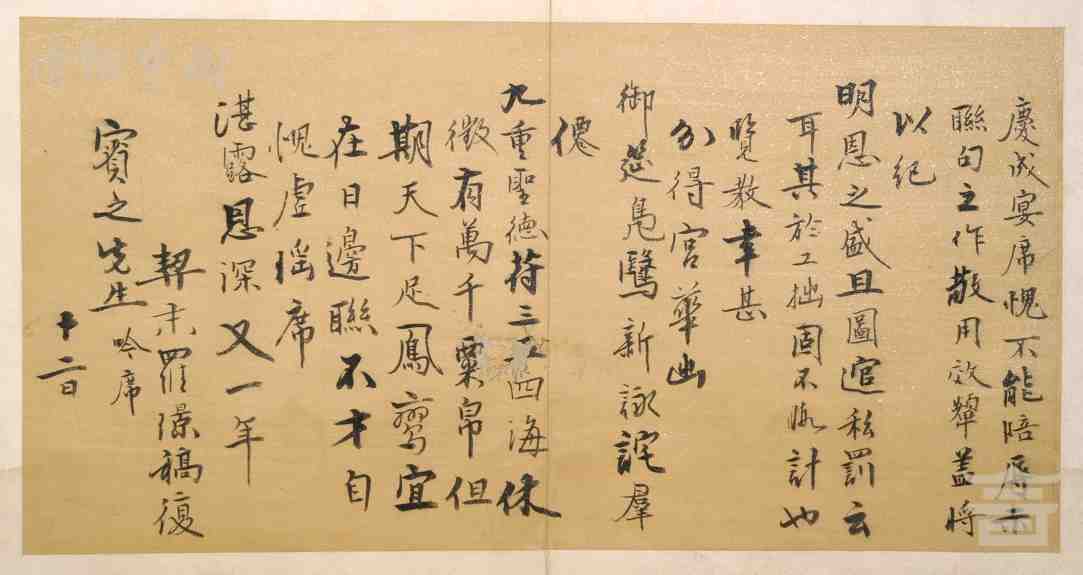 慶成宴席愧不能陪辱示
聯句之作敬用效顰蓋將
以紀
明恩之盛且圖逭私罰云
耳其於工拙固不暇計也
覽教幸甚
分得宮華出
御筵鳧鷖新詠詫羣
僊
九重聖德符三五四海休
徵有萬千粟帛但
期天下足鳳鸞宜
在日邊聯不才自
愧虛瑤席
湛露恩深又一年
契末羅璟稿復
賓之先生吟席
十二日